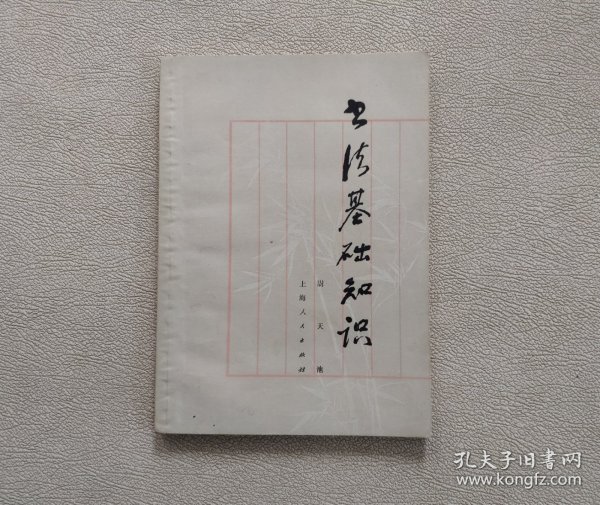 书法基础知识
尉天池
上海人民出版社
孔夫子旧书网
www.kongfz.com